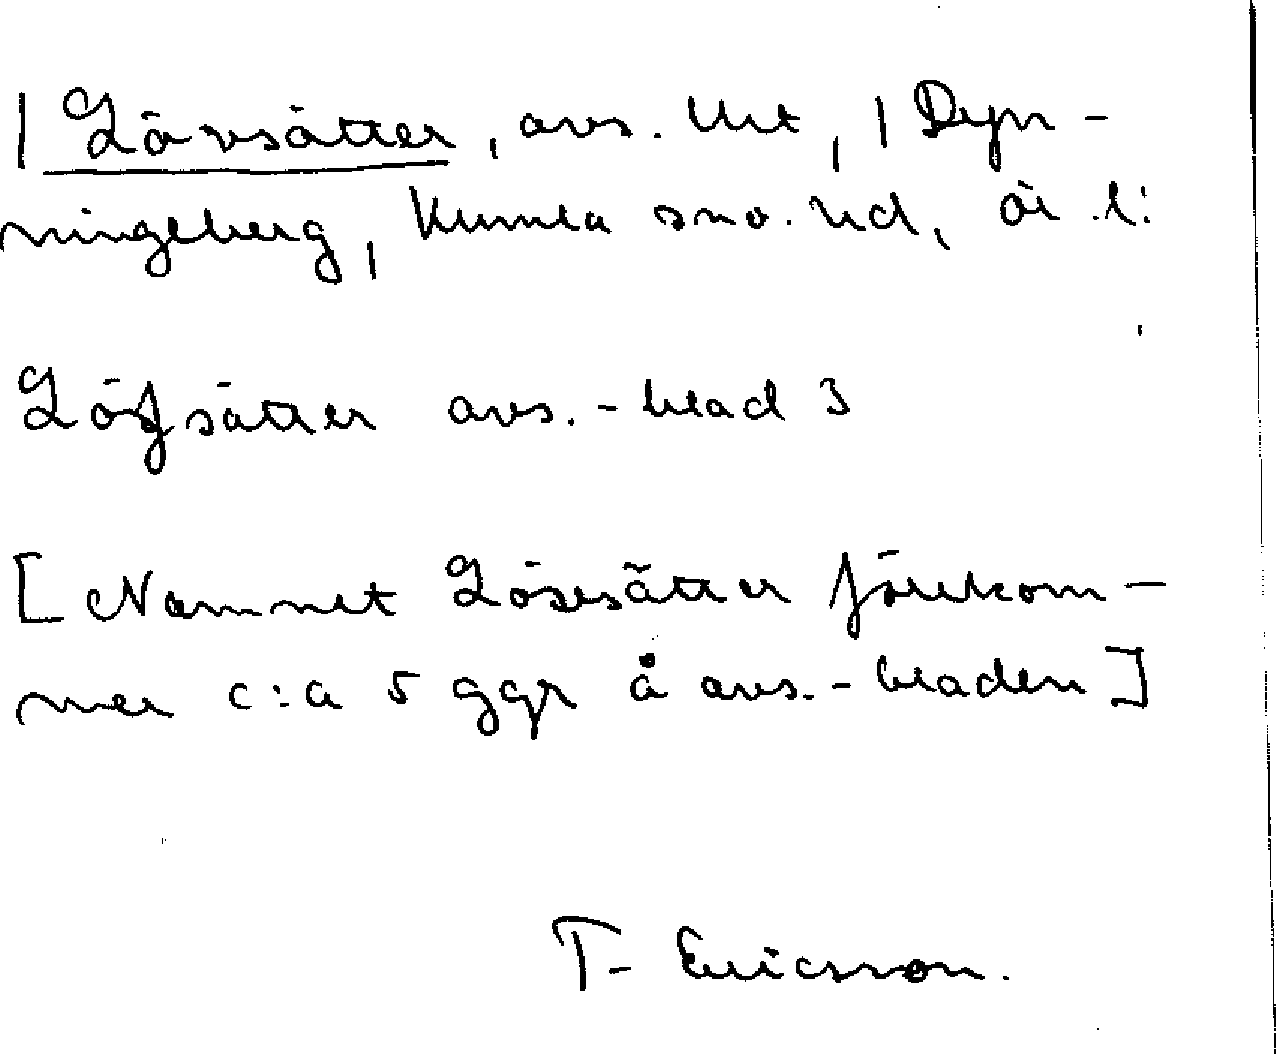 | Lövsätter, avs. lht, | Dyn-
ningeberg, | Kumla sn o. hd, Ör. l:
Löfsätter avs.-blad 3
[Namnet Lövsätter förekom-
mer c:a 5 ggr å avs.-bladen]
T- Ericsson.